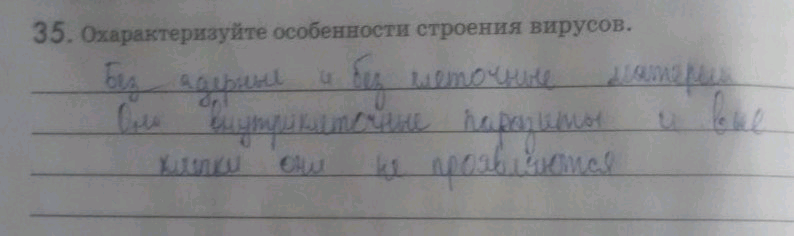 35. Охарактеризуйте особенности строения вирусов.
Без ядерные и без клеточные материи
Они внутриклеточные паразиты и вне
клетки они не проявляются